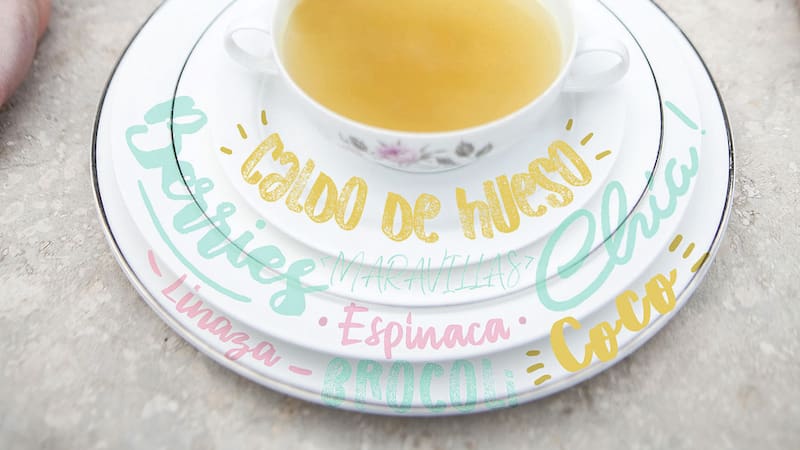 CALDO DE HUESO
Berries
MARAVILLAS
Chia!
Linaza
Espinaca
Coco
BROCOLI